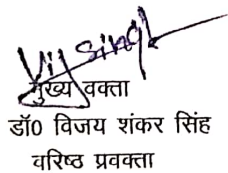 Vij Singh
मुख्य वक्ता
डॉ0 विजय शंकर सिंह
वरिष्ठ प्रवक्ता